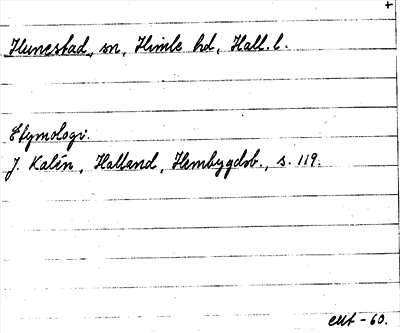 +
Hunestad, sn, Himle hd, Hall. l.
Etymologi.
J. Kalén, Halland, Hembygdsb., s. 119.
-60.